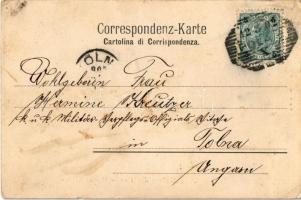 Correspondenz-Karte
Cartolina di Corrispondenza.
OLN
Wohlgeboren Frau
Hermine Kreutzer
k. u. k. Militär Verpflegs Offizials Witwe
in Tolna
Ungarn